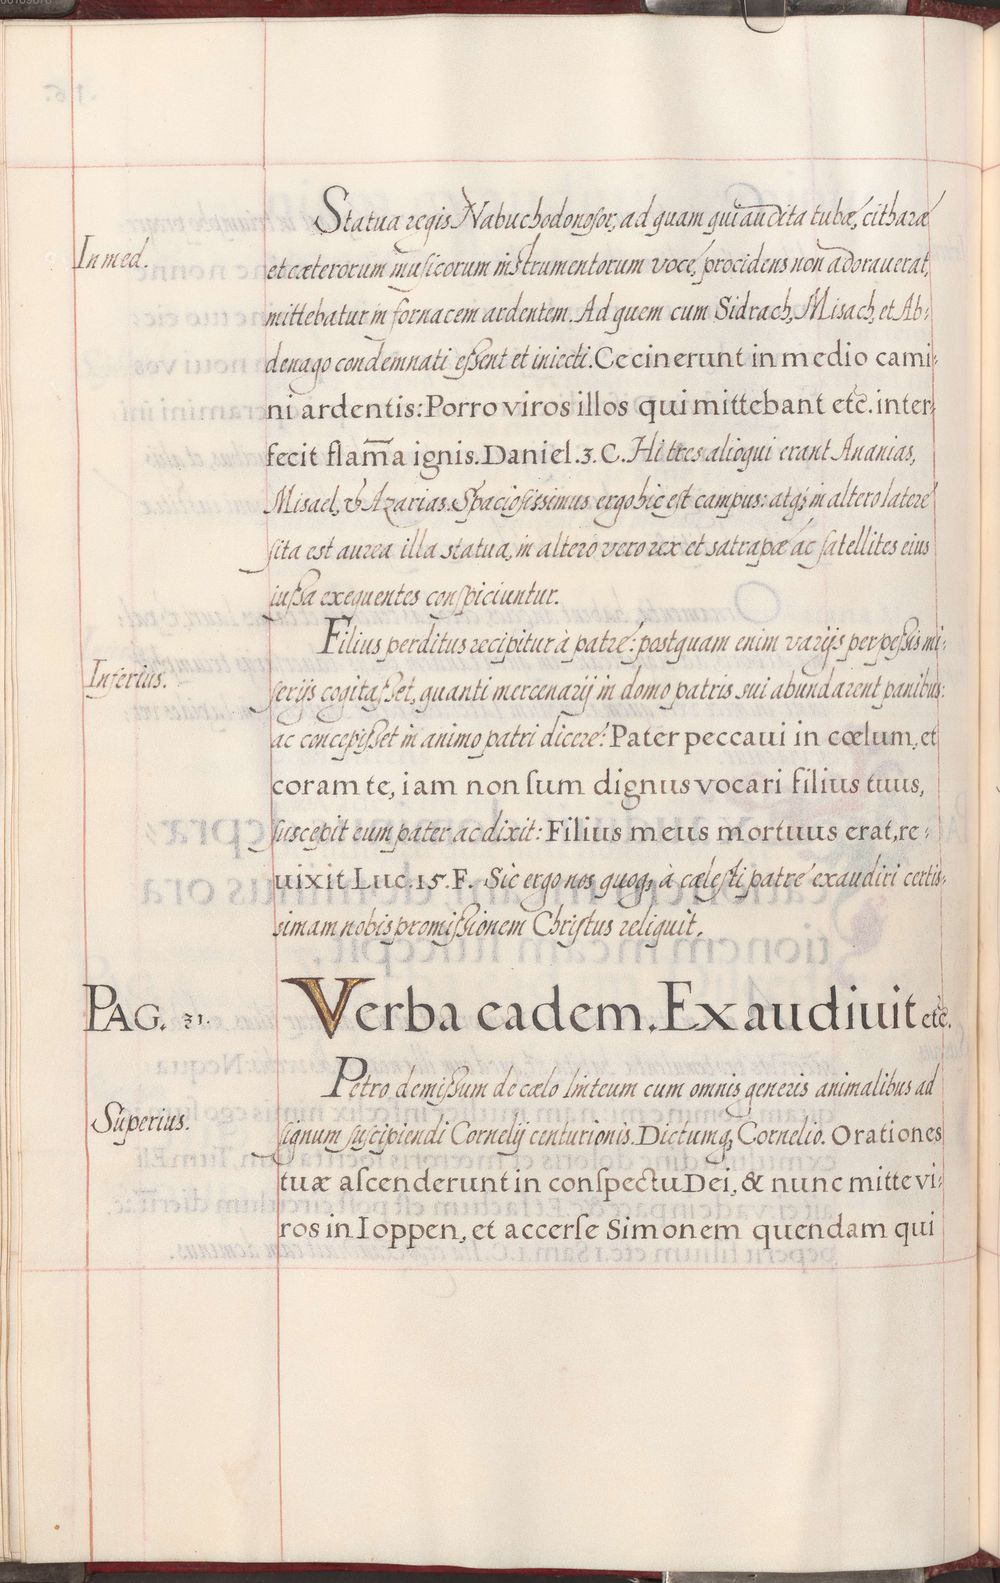 Statua regis Nabuchodonosor, ad quam qui audita tubæ, citharæ
In med.
et cæterorum musicorum instrumentorum voce, procidens non adorauerat,
mittebatur in fornacem ardentem. Ad quem cum Sidrach, Misach, et Ab-
denago condemnati essent et iniecti. Cecinerunt in medio cami-
ni ardentis: Porro viros illos qui mittebant etc. inter-
fecit flam̄a ignis. Daniel. 3. C. Hi tres alioqui erant Ananias,
Misael, & Azarias. Spaciosissimus ergo hic est campus: atq; in altero latere
sita est aurea illa statua, in altero vero rex et satrapæ ac satellites eius
iussa exequentes conspiciuntur.
Filius perditus recipitur à patre: postquam enim varijs perpessis mi-
Inferius.
serijs cogitasset, quanti mercenarij in domo patris sui abundarent panibus:
ac concepisset in animo patri dicere: Pater peccaui in cœlum, et
coram te, iam non sum dignus vocari filius tuus,
suscepit eum pater ac dixit: Filius meus mortuus erat, re-
uixit Luc. 15. F. Sic ergo nos quoq; à cælesti patre exaudiri certis-
simam nobis promissionem Christus reliquit.
PAG. 31. Verba eadem. Exaudiuit etc.
Petro demissum de cælo linteum cum omnis generis animalibus ad
Superius.
signum suscipiendi Cornelij centurionis. Dictumq; Cornelio. Orationes
tuæ ascenderunt in conspectu Dei, & nunc mitte vi-
ros in Ioppen, et accerse Simonem quendam qui